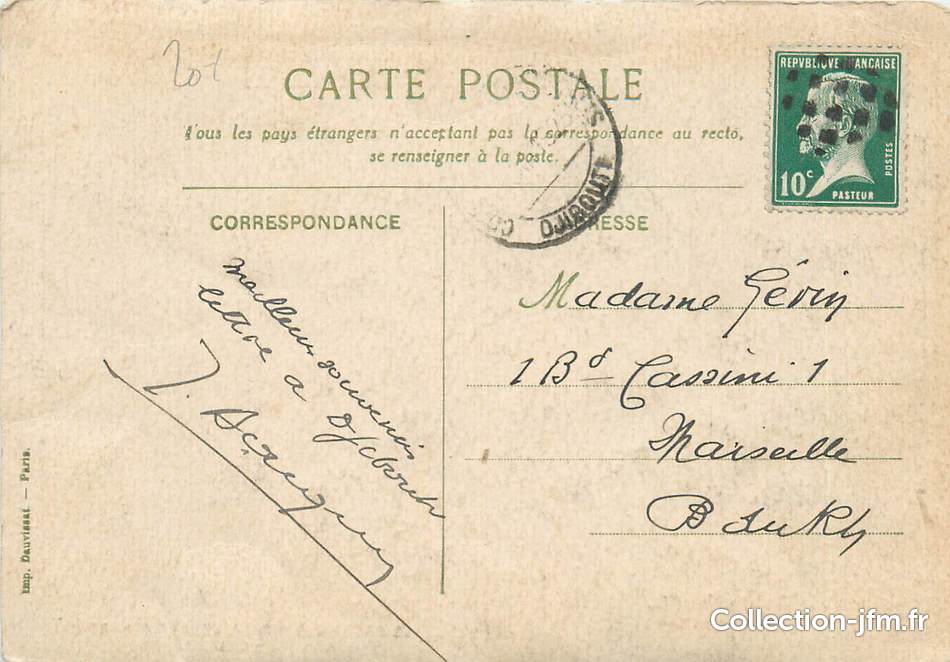 201
CARTE POSTALE
Tous les pays étrangers n'acceptant pas la correspondance au recto,
se renseigner à la poste.
REPUBLIQUE FRANÇAISE
POSTES
10c
PASTEUR
DJIBOUTI
CORRESPONDANCE
ADRESSE
meilleurs souvenirs
lettre a Djibouti
J.
Madame Gévin
1 Bd Cassini 1
Marseille
B du Rh
Imp. Dauvissat — Paris.
Collection-jfm.fr